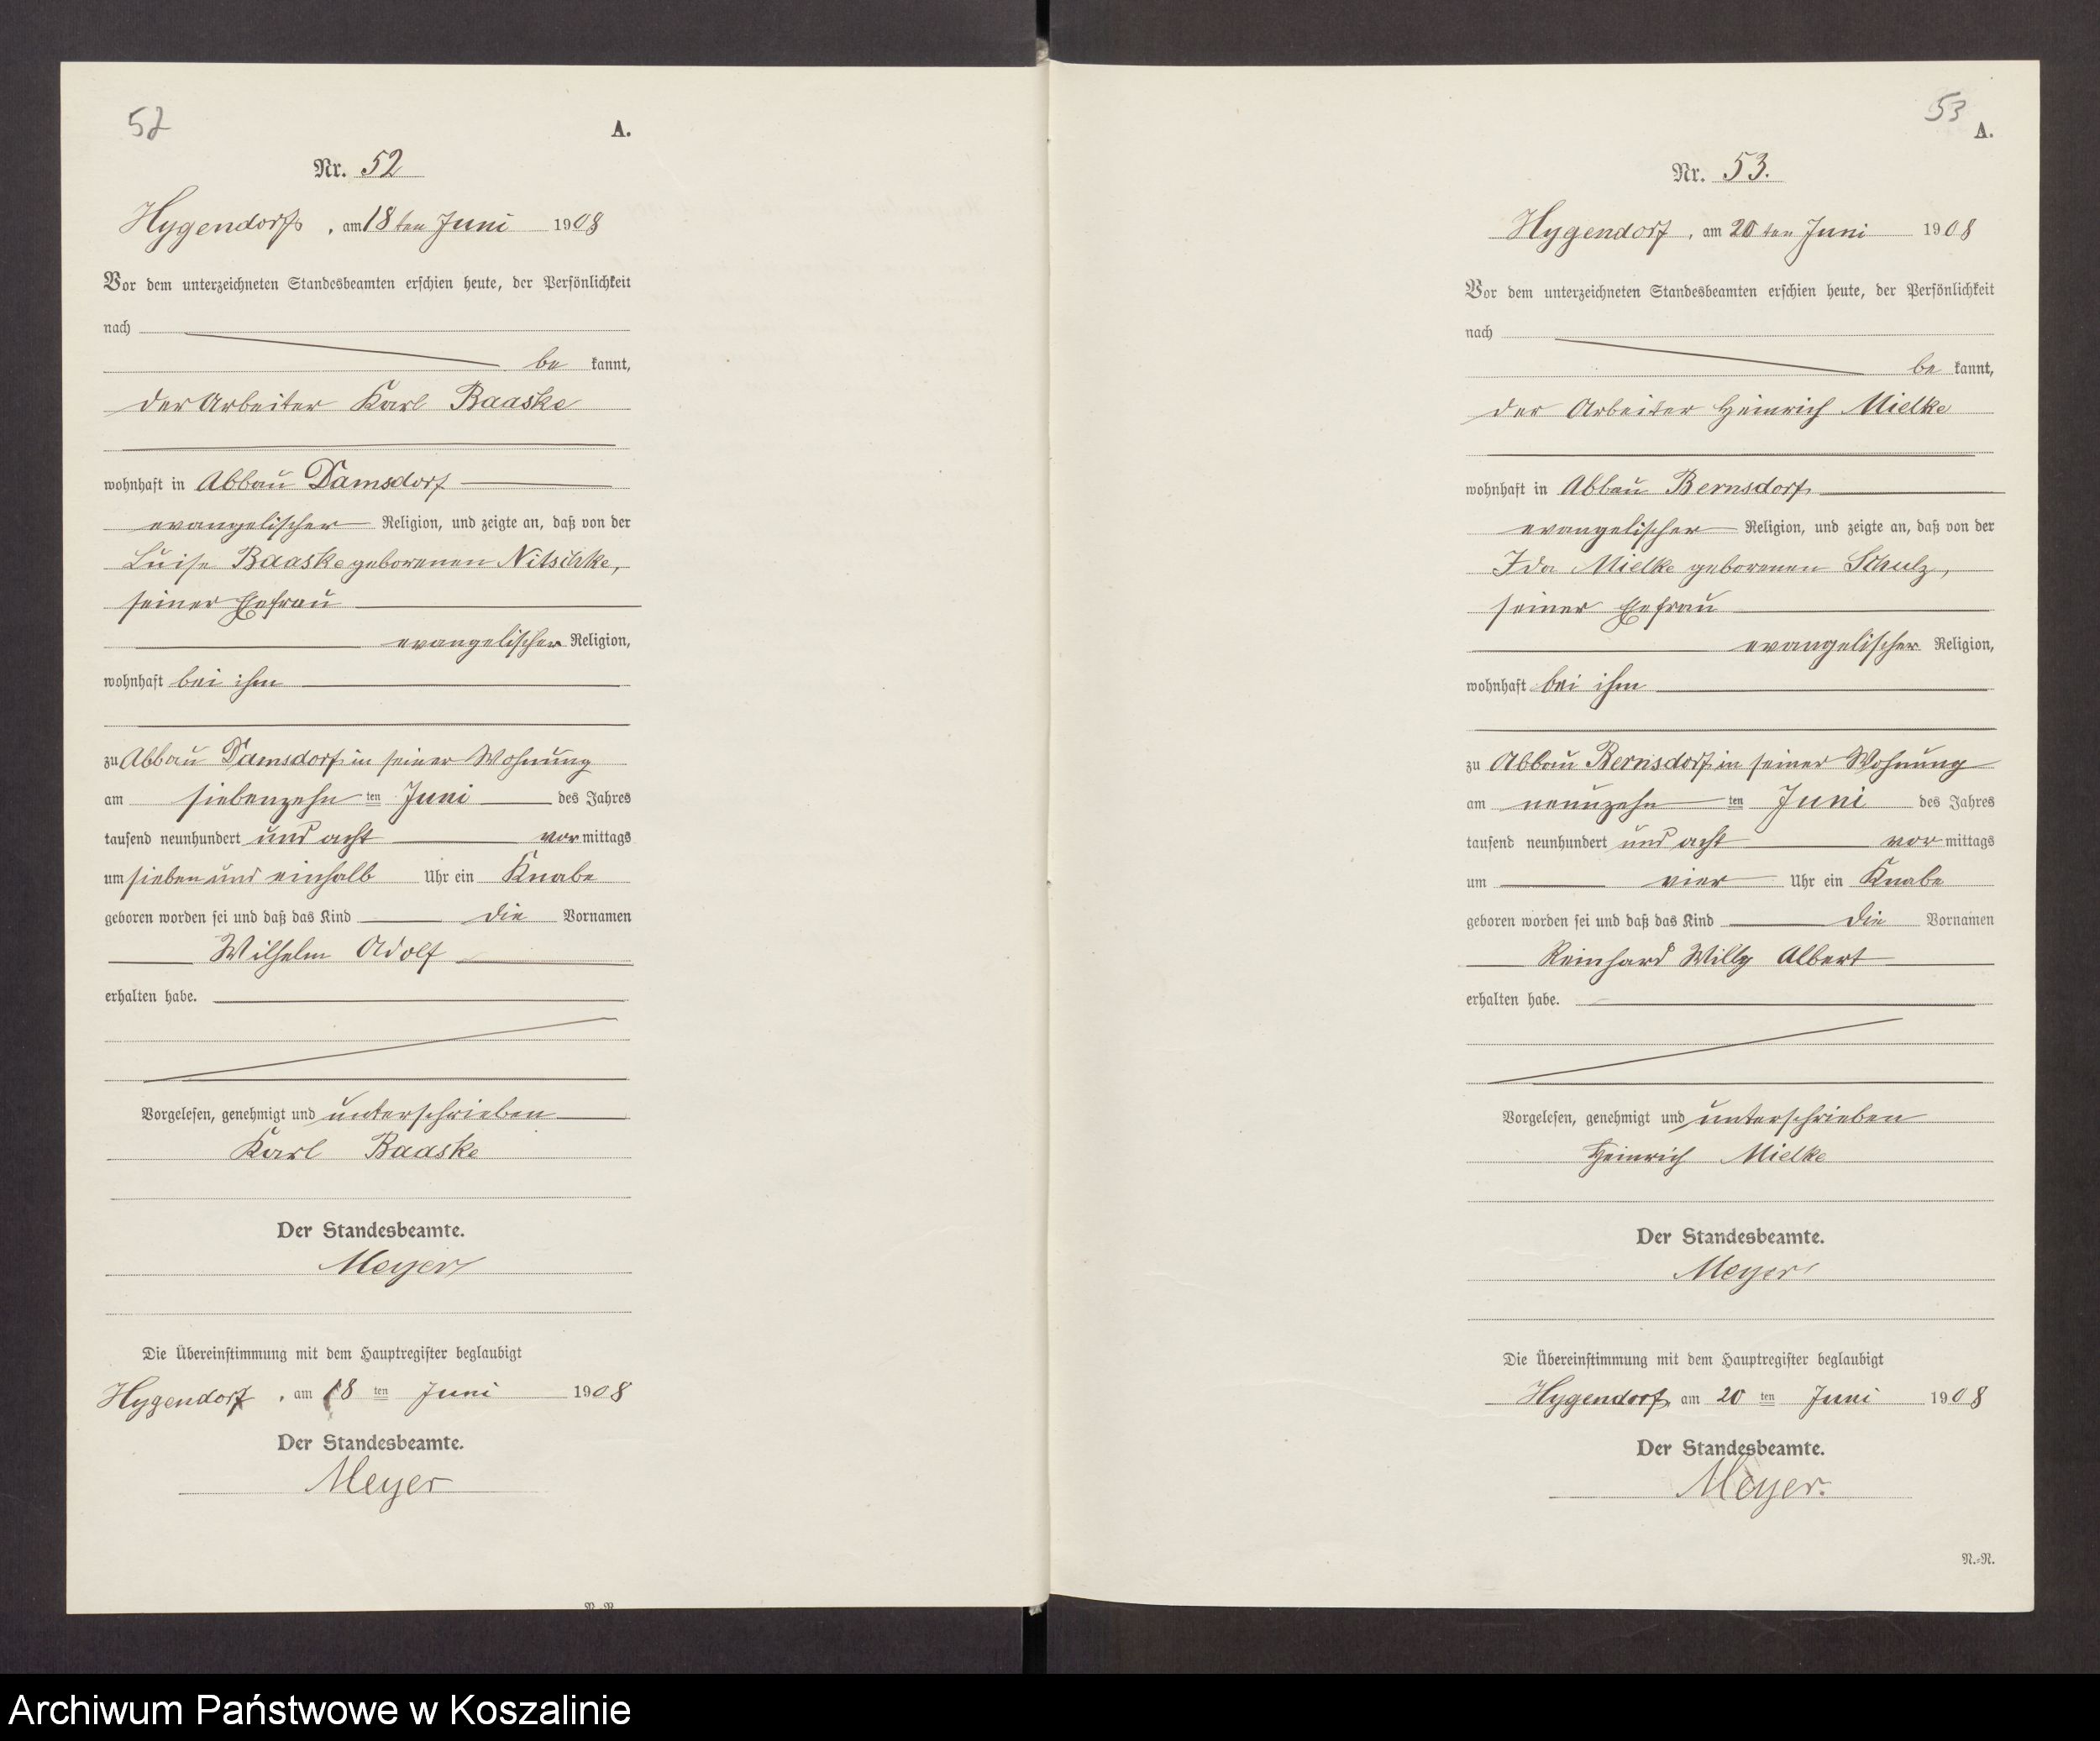 52
A.
Nr. 52
Hygendorf, am 18ten Juni 1908
Vor dem unterzeichneten Standesbeamten erschien heute, der Persönlichkeit
nach
be kannt,
der Arbeiter Karl Baaske
wohnhaft in Abbau Damsdorf
evangelischer Religion, und zeigte an, daß von der
Luise Baaske geborenen Nitschke,
seiner Ehefrau
evangelischer Religion,
wohnhaft bei ihm
zu Abbau Damsdorf in seiner Wohnung
am siebenzehn ten Juni des Jahres
tausend neunhundert und acht vor mittags
um sieben und einhalb Uhr ein Knabe
geboren worden sei und daß das Kind die Vornamen
Wilhelm Adolf
erhalten habe.
Vorgelesen, genehmigt und unterschrieben
Karl Baaske
Der Standesbeamte.
Meyer
Die Übereinstimmung mit dem Hauptregister beglaubigt
Hygendorf, am 18 ten Juni 1908
Der Standesbeamte.
Meyer
53
A.
Nr. 53.
Hygendorf, am 20ten Juni 1908
Vor dem unterzeichneten Standesbeamten erschien heute, der Persönlichkeit
nach
be kannt,
der Arbeiter Heinrich Mielke
wohnhaft in Abbau Bernsdorf
evangelischer Religion, und zeigte an, daß von der
Ida Mielke geborenen Schulz,
seiner Ehefrau
evangelischer Religion,
wohnhaft bei ihm
zu Abbau Bernsdorf in seiner Wohnung
am neunzehn ten Juni des Jahres
tausend neunhundert und acht vor mittags
um vier Uhr ein Knabe
geboren worden sei und daß das Kind die Vornamen
Reinhard Willy Albert
erhalten habe.
Vorgelesen, genehmigt und unterschrieben
Heinrich Mielke
Der Standesbeamte.
Meyer
Die Übereinstimmung mit dem Hauptregister beglaubigt
Hygendorf, am 20 ten Juni 1908
Der Standesbeamte.
Meyer.
N.-N.
Archiwum Państwowe w Koszalinie